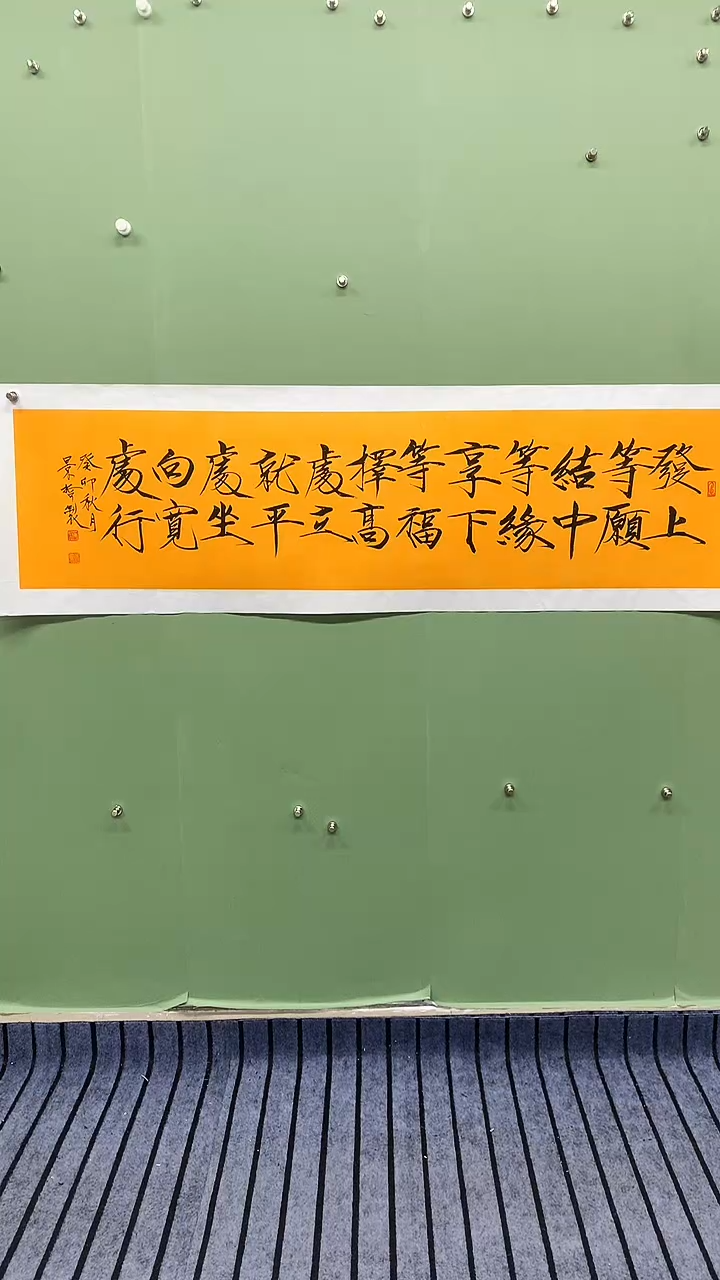 發上
等願
結中
等緣
享下
等福
擇髙
處立
就平
處坐
向寬
處行
癸卯秋月
景製